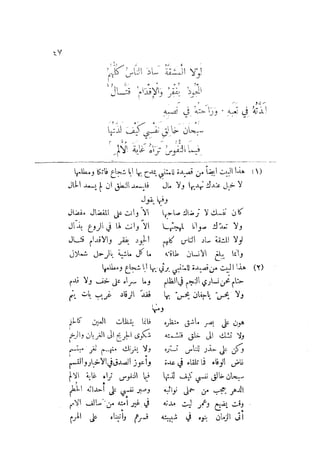 ٤٧
لولا المشقة ساد الناس كلهم
الجود يفقر والإقدام قتّال
لذته في تعبه . وراحته في نصبه
سبحان خالق نفسي كيف لذتها
فيما النفوس تراه غاية الألم
(١) هذا البيت أيضاً من قصيدة للمتنبي يمدح بها أبا شجاع فاتكا ومطلعها
لا خيل عندك تهديها ولا مال فليسعد النطق ان لم يسعد الحال
وفيها يقول
كأن نفسك لا ترضاك صاحبها الا وأنت على المفضال مفضال
ولا تعدك صوانا لمهجتها الا وأنت لها في الروع بذّال
لولا المشقة ساد الناس كلهم الجود يفقر والاقدام قتال
وانما يبلغ الانسان طاقته ما كل ماشية بالرحل شملال
(٢) هذا البيت من قصيدة للمتنبي يرثي بها أبا شجاع ومطلعها
حتام نحن نساري النجم في الظلم وما سراه على خف ولا قدم
ولا يحس بأجفان يحس بها فقد الرقاد غريب بات لم ينم
ومنها
هون على بصر ما شق منظره فانما يقظات العين كالحلم
ولا تشك الى خلق فتشمته شكوى الجريح الى الغربان والرخم
وكن على حذر للناس تستره ولا يغرك منهم ثغر مبتسم
غاض الوفاء فما تلقاه في عدة وأعوز الصدق في الاخبار والقسم
سبحان خالق نفسي كيف لذتها فيما النفوس تراه غاية الالم
الدهر يعجب من حملي نوائبه وصبر نفسي على أحداثه الحطم
وقت يضيع وعمر ليت مدته في غير أمته من سالف الامم
أتى الزمان بنوه في شبيبته فسرهم وأتيناه على الهرم